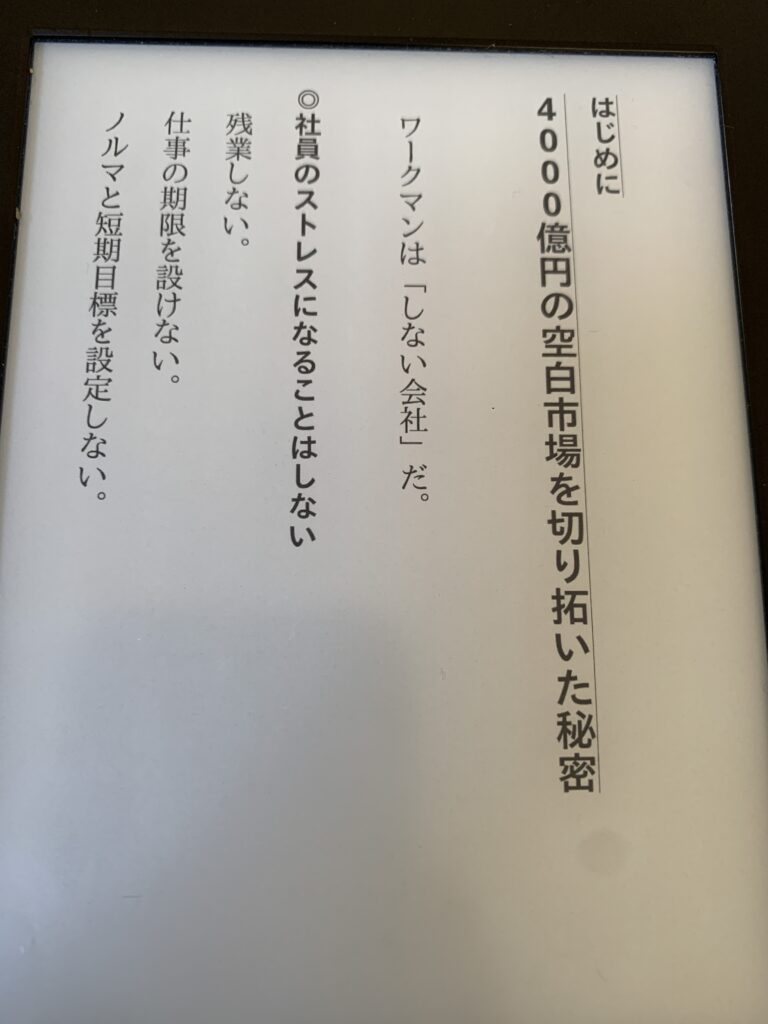 はじめに
4000億円の空白市場を切り拓いた秘密
ワークマンは「しない会社」だ。
◎社員のストレスになることはしない
残業しない。
仕事の期限を設けない。
ノルマと短期目標を設定しない。